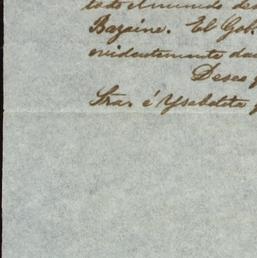 todo el mundo des
Bazaine. El Gob
evidentemente da
Deseo q
Sra. é Ysabelita q